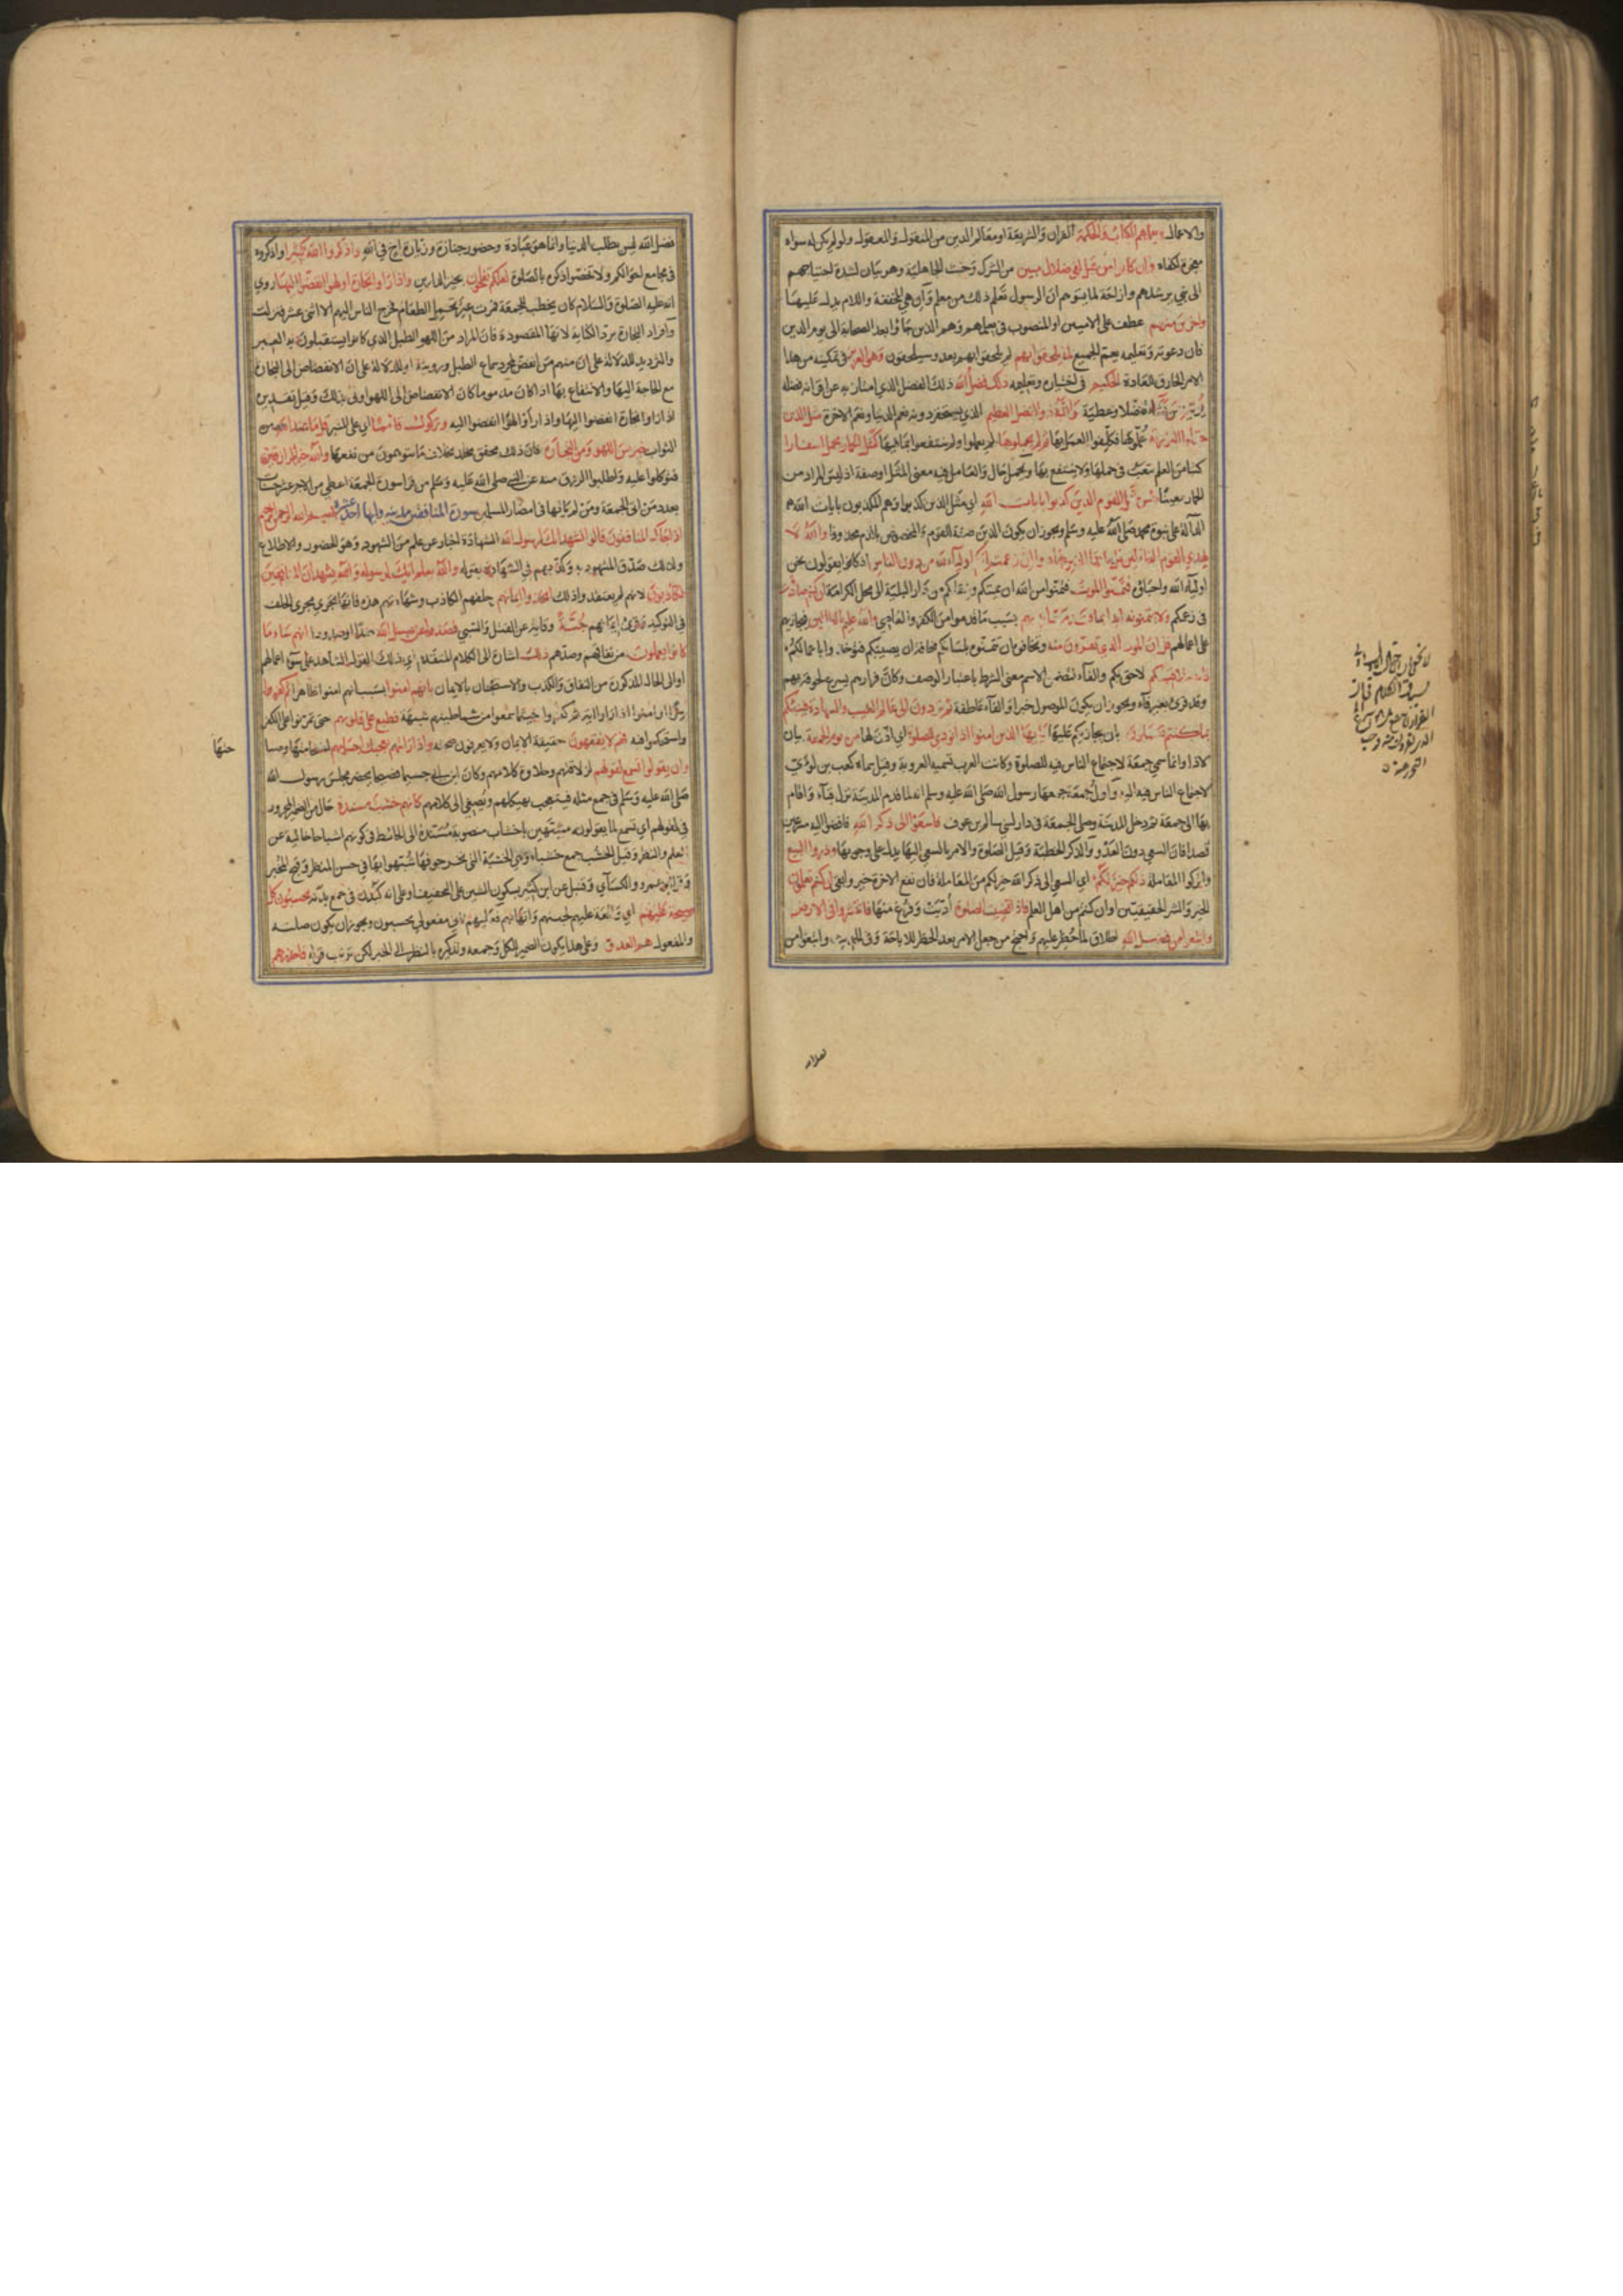 والاعمال ويعلمهم الكتاب والحكمة القران والشريعة او معالم الدين من المنقول والمعقول ولو لم يكن له سواه
معجزة لكفاه وان كانوا من قبل لفي ضلال مبين من الشرك وخبث الجاهلية وهو بيان لشدة احتياجهم
الى نبي يرشدهم وازاحة لما يتوهم ان الرسول تعلم ذلك من معلم وان هي المخففة واللام يدل عليها
واخرين منهم عطف على الاميين او المنصوب في يعلمهم وهم الذين جاؤا بعد الصحابة الى يوم الدين
فان دعوته وتعليمه يعم الجميع لما يلحقوا بهم لم يلحقوا بهم بعد وسيلحقون وهو العزيز في تمكينه من هذا
الامر الخارق للعادة الحكيم في اختياره وتعليمه ذلك فضل الله ذلك الفضل الذي امتاز به عن اقرانه فضله
يؤتيه من يشاء تفضلا وعطية والله ذو الفضل العظيم الذي يستحقر دونه نعم الدنيا ونعم الاخرة مثل الذين
حملوا التورية علموها فكلفوا العمل بها ثم لم يحملوها لم يعملوا ولم ينتفعوا بما فيها كمثل الحمار يحمل اسفارا
كتبا من العلم يتعب في حملها ولا ينتفع بها ويحمل حال والعامل فيه معنى المثل او صفة اذ ليس المراد من
الحمار معينا بئس مثل القوم الذين كذبوا بايات الله اي مثل الذين كذبوا وهم المكذبون بايات الله
الدالة على نبوة محمد صلى الله عليه وسلم ويجوز ان يكون الذين صفة القوم والمخصوص بالذم محذوفا والله لا
يهدي القوم الظالمين قل يا ايها الذين هادوا ان زعمتم انكم اولياء لله من دون الناس اذ كانوا يقولون نحن
اولياء الله واحباؤه فتمنوا الموت فتمنوا من الله ان يميتكم وينقلكم من دار البلية الى محل الكرامة ان كنتم صادقين
في زعمكم ولا يتمنونه ابدا بما قدمت ايديهم بسبب ما قدموا من الكفر والمعاصي والله عليم بالظالمين فيجازيهم
على اعمالهم قل ان الموت الذي تفرون منه وتخافون ان تتمنوه بلسانكم مخافة ان يصيبكم فتؤخذوا باعمالكم
فانه ملاقيكم لاحق بكم والفاء لتضمن الاسم معنى الشرط باعتبار الوصف وكان فرارهم يسرع لحوقه بهم
وقد قرئ بغير فاء ويجوز ان يكون الموصول خبرا والفاء عاطفة ثم تردون الى عالم الغيب والشهادة فينبئكم
بما كنتم تعملون بان يجازيكم عليها يا ايها الذين امنوا اذا نودي للصلوة اي اذن لها من يوم الجمعة بيان
لاذا وانما سمي جمعة لاجتماع الناس فيه للصلوة وكانت العرب تسميه العروبة وقيل سماه كعب بن لؤي
لاجتماع الناس فيه اليه واول جمعة جمعها رسول الله صلى الله عليه وسلم انه لما قدم المدينة نزل قباء واقام
بها الى جمعة ثم دخل المدينة وصلى الجمعة في دار لبني سالم بن عوف فاسعوا الى ذكر الله فامضوا اليه مسرعين
قصدا فان السعي دون العدو والذكر الخطبة وقيل الصلوة والامر بالسعي اليها يدل على وجوبها وذروا البيع
واتركوا المعاملة ذلكم خير لكم اي السعي الى ذكر الله خير لكم من المعاملة فان نفع الاخرة خير وابقى ان كنتم تعلمون
الخير والشر الحقيقيين او ان كنتم من اهل العلم فاذا قضيت الصلوة اديت وفرغ منها فانتشروا في الارض
وابتغوا من فضل الله اطلاق لما حظر عليهم واحتج به من جعل الامر بعد الحظر للاباحة وفي الحديث وابتغوا من
فضل الله ليس بطلب الدنيا وانما هو عيادة وحضور جنازة وزيارة اخ في الله واذكروا الله كثيرا واذكروه
في مجامع احوالكم ولا تخصوا ذكره بالصلوة لعلكم تفلحون بخير الدارين واذا راوا تجارة او لهوا انفضوا اليها روي
انه عليه الصلوة والسلام كان يخطب للجمعة فمرت عير تحمل الطعام فخرج الناس اليهم الا اثني عشر فنزلت
وافراد التجارة برد الكناية لانها المقصودة فان المراد من اللهو الطبل الذي كانوا يستقبلون به العير
والترديد للدلالة على ان منهم من انفض لمجرد سماع الطبل ورويته او للدلالة على ان الانفضاض الى التجارة
مع الحاجة اليها والانتفاع بها اذا كان مذموما كان الانفضاض الى اللهو اولى بذلك وقيل تقديره
اذا راوا تجارة انفضوا اليها واذا راوا لهوا انفضوا اليه وتركوك قائما اي على المنبر قل ما عند الله من
الثواب خير من اللهو ومن التجارة فان ذلك محقق مخلد بخلاف ما تتوهمون من نفعها والله خير الرازقين
فتوكلوا عليه واطلبوا الرزق منه عن النبي صلى الله عليه وسلم من قرا سورة الجمعة اعطي من الاجر عشر حسنات
بعدد من اتى الجمعة ومن لم ياتها في امصار المسلمين سورة المنافقين مدنية وايها احدى عشرة بسم الله الرحمن الرحيم
اذا جاءك المنافقون قالوا نشهد انك لرسول الله الشهادة اخبار عن علم من الشهود وهو الحضور والاطلاع
ولذلك صدق المشهود به وكذبهم في الشهادة بقوله والله يعلم انك لرسوله والله يشهد ان المنافقين
لكاذبون لانهم لم يعتقدوا ذلك اتخذوا ايمانهم حلفهم الكاذب وشهادتهم هذه فانها تجري مجرى الحلف
في التوكيد وقرئ ايمانهم جنة وقاية عن القتل والسبي فصدوا عن سبيل الله صدا او صدودا انهم ساء ما
كانوا يعملون من نفاقهم وصدهم ذلك اشارة الى الكلام المتقدم اي ذلك القول الشاهد على سوء اعمالهم
او الى الحال المذكورة من النفاق والكذب والاستجنان بالايمان بانهم امنوا بسبب انهم امنوا ظاهرا ثم كفروا
سرا او امنوا اذا راوا اية ثم كفروا حيثما سمعوا من شياطينهم شبهة فطبع على قلوبهم حتى تمرنوا على الكفر
واستحكموا فيه فهم لا يفقهون حقيقة الايمان ولا يعرفون صحته واذا رايتهم تعجبك اجسامهم لضخامتها وصباحتها
وان يقولوا تسمع لقولهم لذلاقتهم وحلاوة كلامهم وكان ابن ابي جسيما فصيحا يحضر مجلس رسول الله
صلى الله عليه وسلم في جمع مثله فيعجب بهيكلهم ويصغي الى كلامهم كانهم خشب مسندة حال من الضمير المجرور
في لقولهم اي تسمع لما يقولونه مشبهين باخشاب منصوبة مسندة الى الحائط في كونهم اشباحا خالية عن
العلم والنظر وقيل الخشب جمع خشباء وهي الخشبة التي نخر جوفها شبهوا بها في حسن المنظر وقبح المخبر
وقرا ابو عمرو والكسائي وقنبل عن ابن كثير بسكون الشين على التخفيف او على انه كبدن في جمع بدنة يحسبون كل
صيحة عليهم اي واقعة عليهم لجبنهم واتهامهم فعليهم ثاني مفعولي يحسبون ويجوز ان يكون صلته
والمفعول هم العدو وعلى هذا يكون الضمير للكل وجمعه بالنظر الى الخبر لكن ترتب قوله فاحذرهم